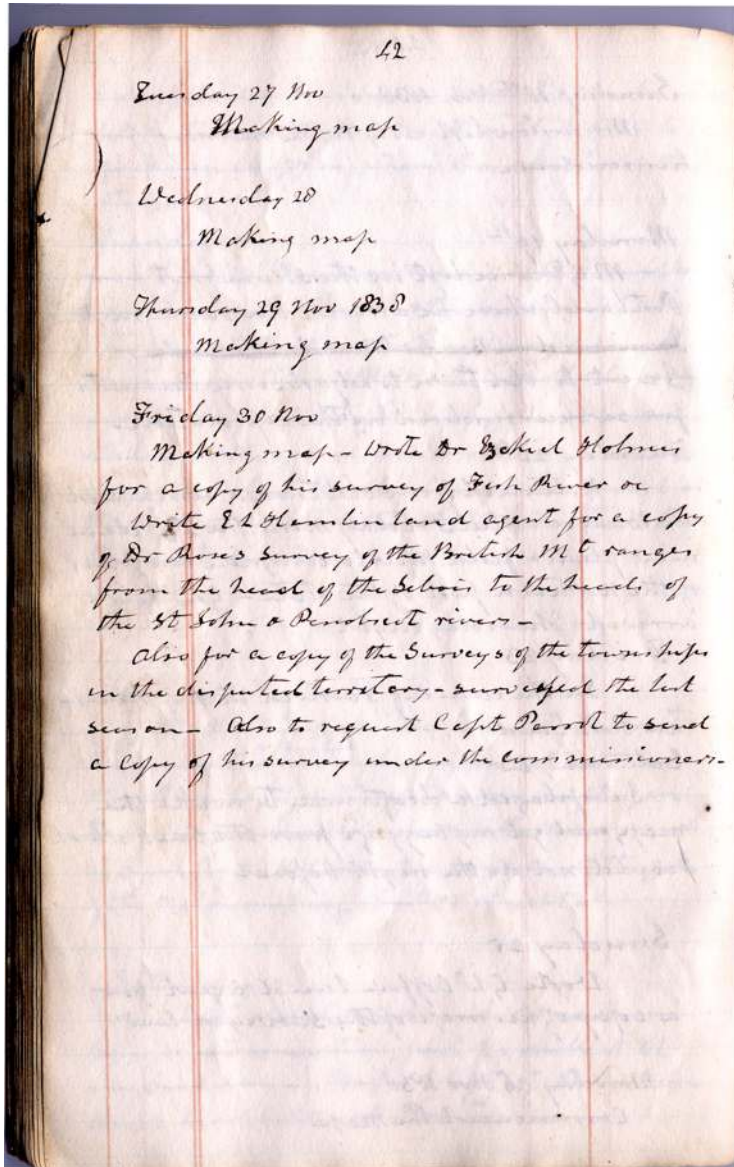 42
Tuesday 27 Nov
Making map
Wednesday 28
Making map
Thursday 29 Nov 1838
Making map
Friday 30 Nov
Making map - Wrote Dr Ezekiel Holmes
for a copy of his survey of Fish River &c
Write E L Hamlin land agent for a copy
of Dr Roses survey of the British Mt ranges
from the head of the Sebois to the heads of
the St John & Penobscot rivers -
Also for a copy of the Surveys of the townships
in the disputed territory - surveyed the last
season - Also to request Capt Parrot to send
a copy of his survey under the commissioners -